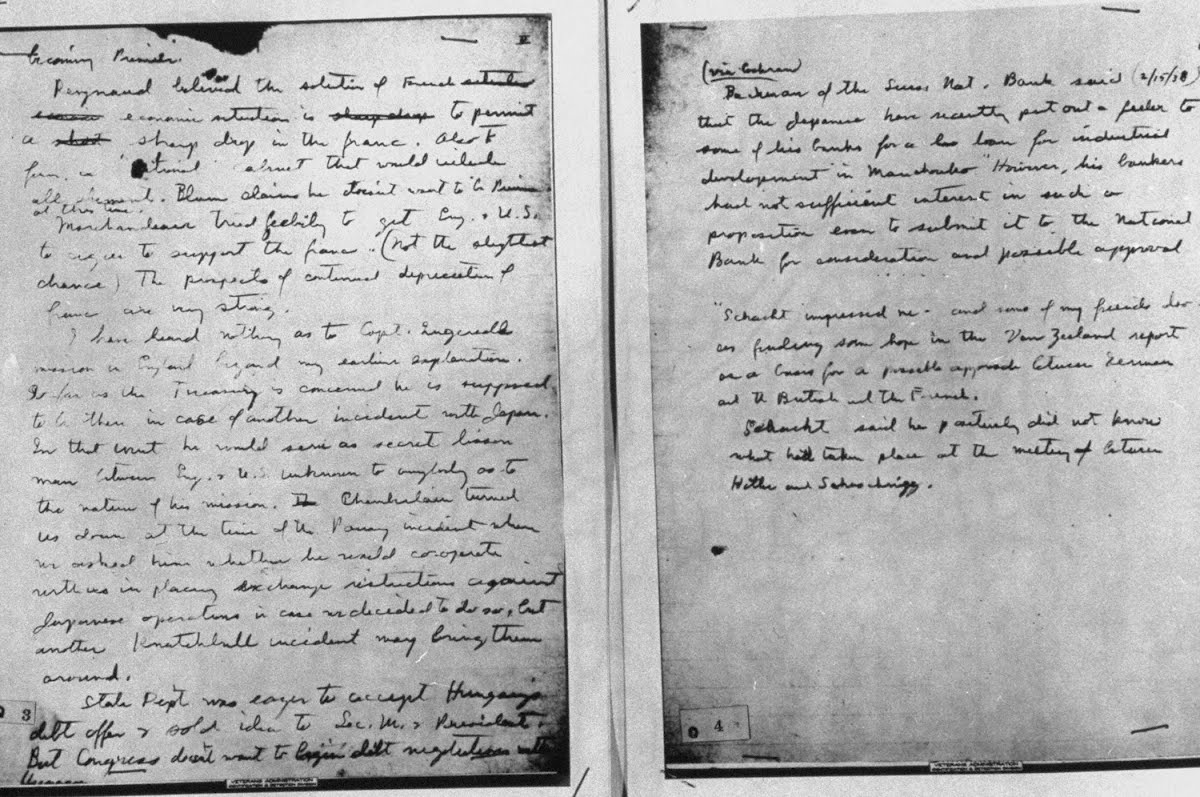 becoming Premier.
Reynaud believed the solution of French
economic situation is to permit
a sharp drop in the franc. Also to
form a "national" cabinet that would include
all elements. Blum claims he doesn't want to be Premier
at this time.
Marchandeau tried feebly to get Eng. & U.S.
to agree to support the franc. (Not the slightest
chance) The prospects of continued depreciation of
franc are very strong.
I have heard nothing as to Capt. Ingersoll
mission in England beyond my earlier explanation.
In so far as the Treasury is concerned he is supposed
to be there in case of another incident with Japan.
In that event he would serve as secret liason
man between Eng. & U.S. unknown to anybody as to
the nature of his mission. Chamberlain turned
us down at the time of the Panay incident when
we asked him whether he would co-operate
with us in placing exchange restrictions against
Japanese operations in case we decided to do so, but
another Knatchbull incident may bring them
around.
State Dept was eager to accept Hungary's
debt offer & sold idea to Sec. M. & President.
But Congress doesn't want to begin debt negotiations with
3
VETERANS ADMINISTRATION
(via Cochran)
Bachman of the Swiss Nat. Bank said (2/15/38)
that the Japanese have recently put out a feeler to
some of his banks for a loan for industrial
development in Manchouko" However, his bankers
had not sufficient interest in such a
proposition even to submit it to the National
Bank for consideration and possible approval
. . . .
"Schacht impressed me - and some of my friends also
as finding some hope in the Van Zeeland report
as a basis for a possible approach between German
and the British and the French.
Schacht said he positively did not know
what had taken place at the meeting of between
Hitler and Schuschnigg.
4
VETERANS ADMINISTRATION